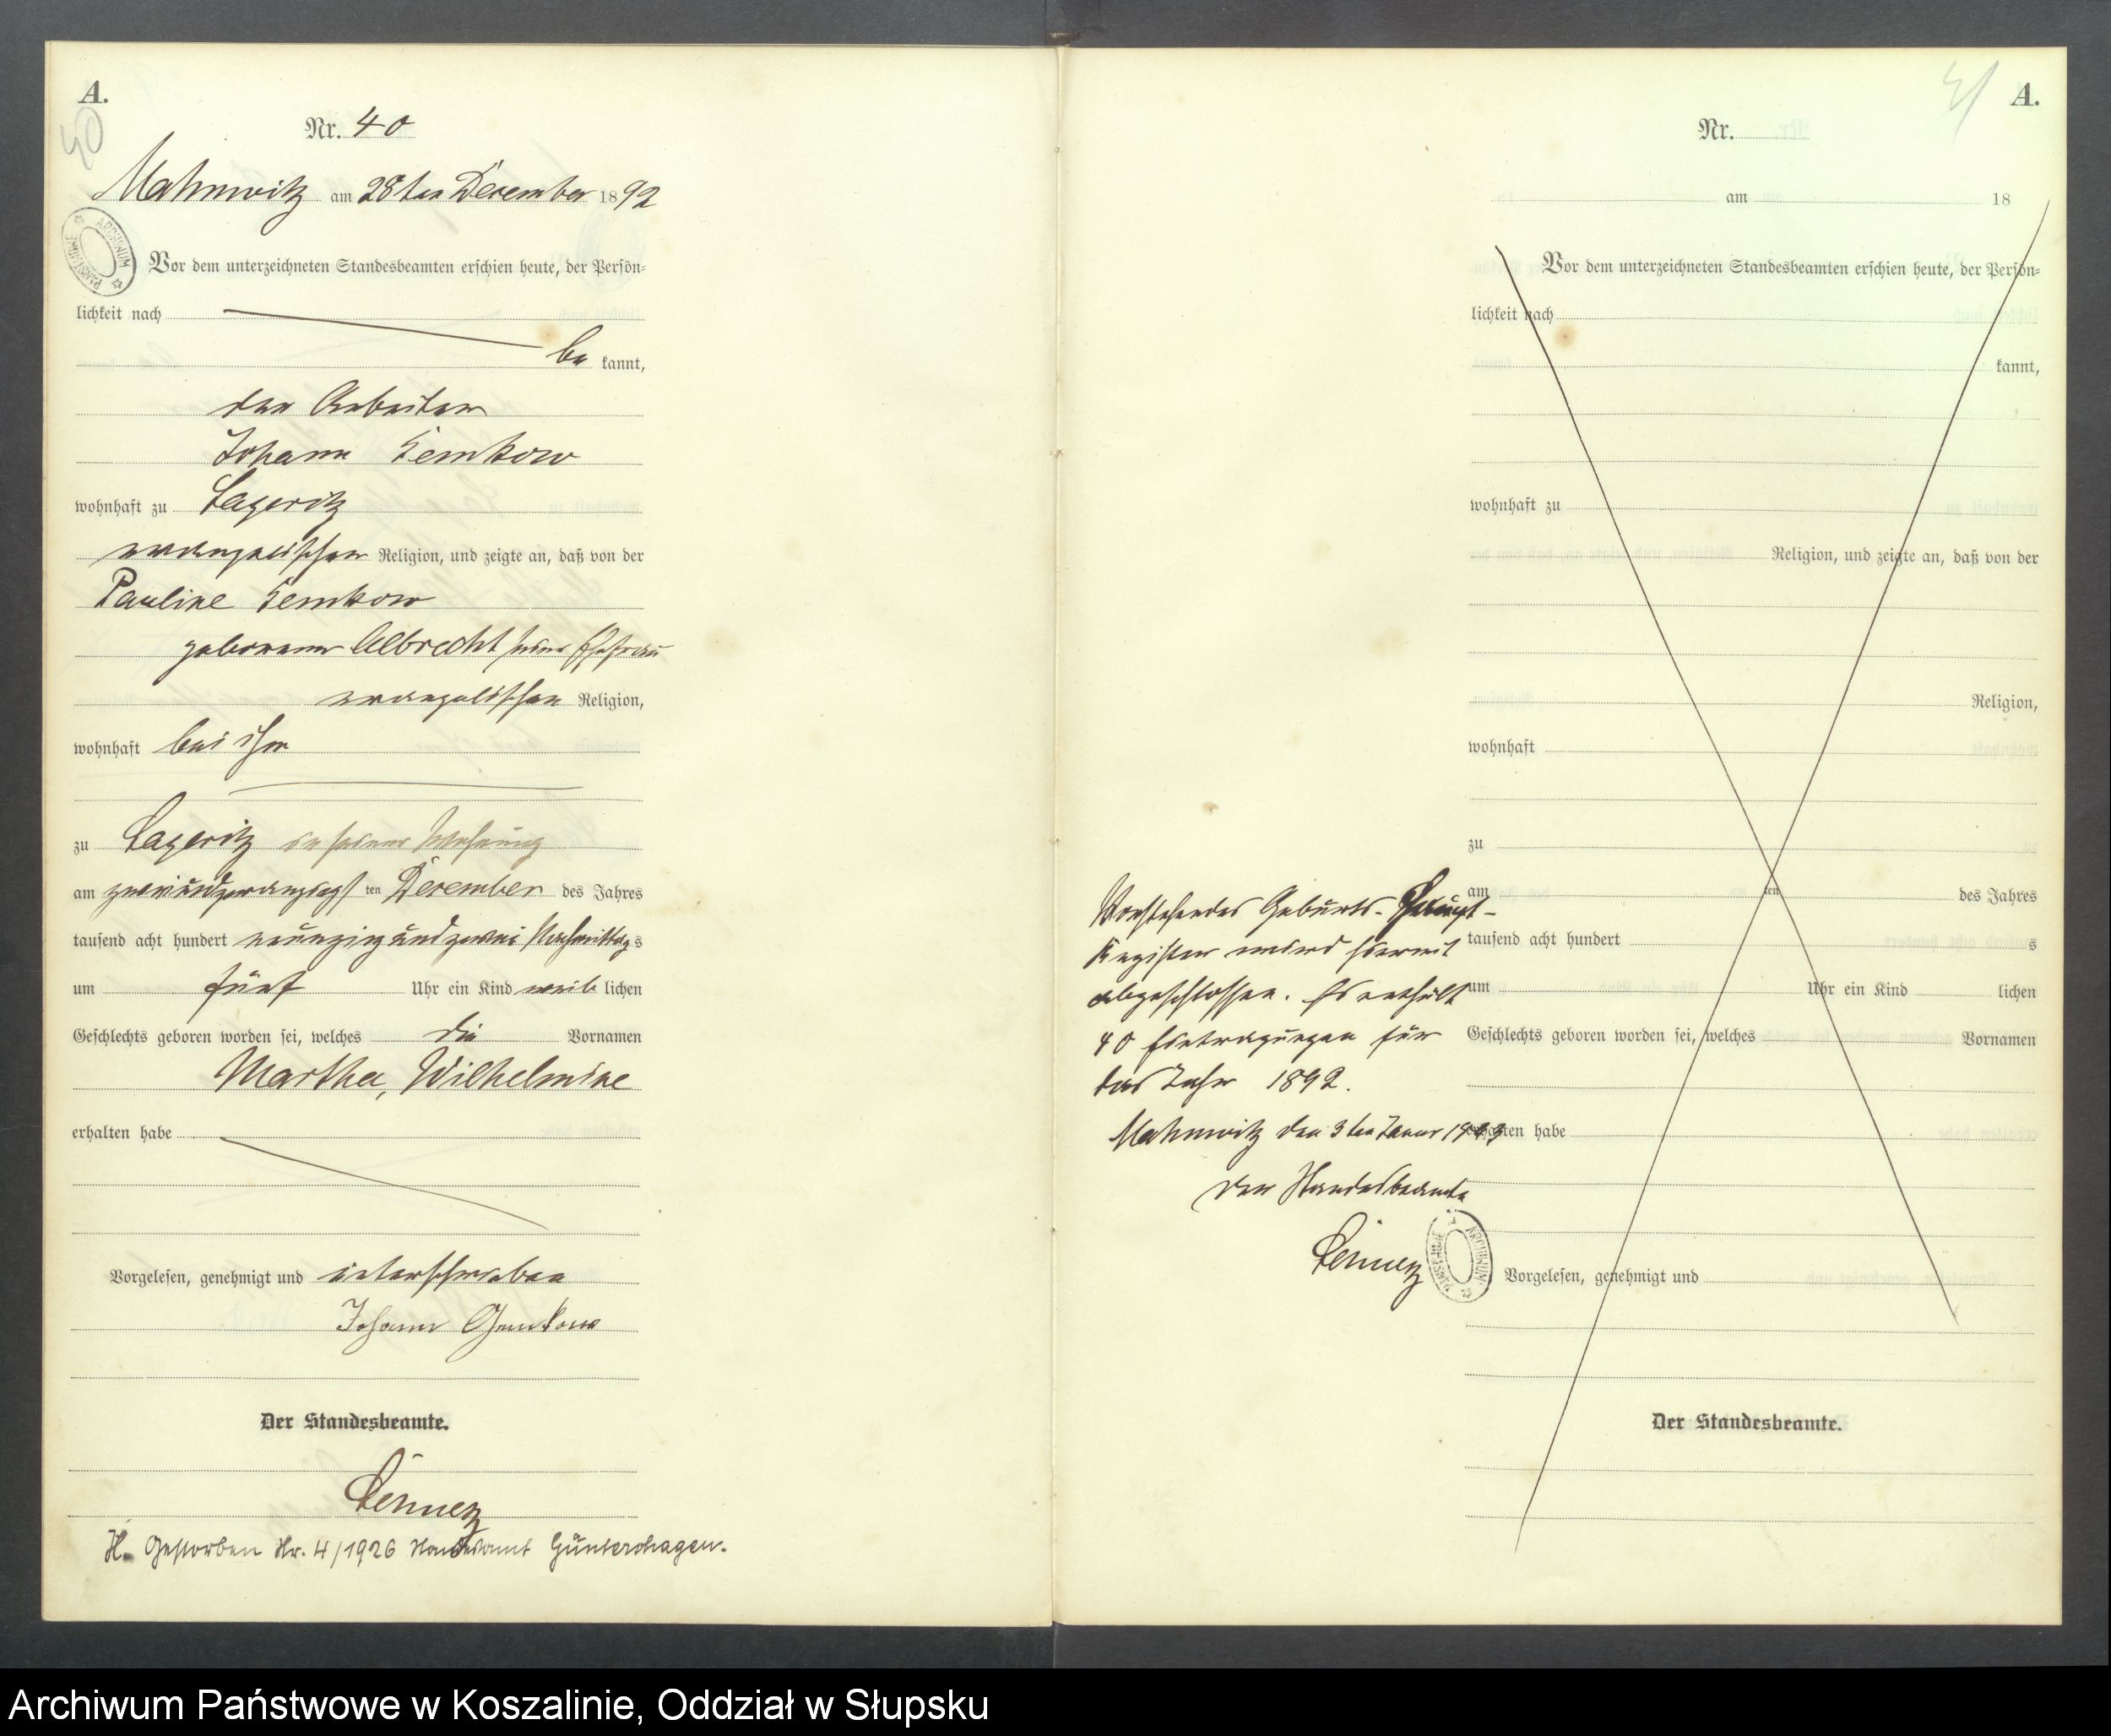 A.
40
Nr. 40
Mahnwitz am 28ten Dezember 1892
ARCHIWUM PAŃSTWOWE
Vor dem unterzeichneten Standesbeamten erschien heute, der Persön=
lichkeit nach
be kannt,
der Arbeiter
Johann Gemkow
wohnhaft zu Lageritz
evangelischer Religion, und zeigte an, daß von der
Pauline Gemkow
geborenen Albrecht seiner Ehefrau
evangelischer Religion,
wohnhaft bei ihm
zu Lageritz in seiner Wohnung
am zweiundzwanzigst ten Dezember des Jahres
tausend acht hundert neunzig und zwei Nachmittags
um fünf Uhr ein Kind weib lichen
Geschlechts geboren worden sei, welches die Vornamen
Martha, Wilhelmine
erhalten habe
Vorgelesen, genehmigt und unterschrieben
Johann Gemkow
Der Standesbeamte.
H. Gestorben Nr. 4/1926 Standesamt Güntershagen.
41
A.
Nr.
am 18
Vor dem unterzeichneten Standesbeamten erschien heute, der Persön=
lichkeit nach
kannt,
wohnhaft zu
Religion, und zeigte an, daß von der
Religion,
wohnhaft
zu
am ten des Jahres
tausend acht hundert s
um Uhr ein Kind lichen
Geschlechts geboren worden sei, welches Vornamen
erhalten habe
Vorgelesen, genehmigt und
Der Standesbeamte.
Vorstehendes Geburts-Haupt-
Register wird hiermit
abgeschlossen. Es enthält
40 Eintragungen für
das Jahr 1892.
Mahnwitz den 3ten Januar 1893
Der Standesbeamte
ARCHIWUM PAŃSTWOWE
Archiwum Państwowe w Koszalinie, Oddział w Słupsku